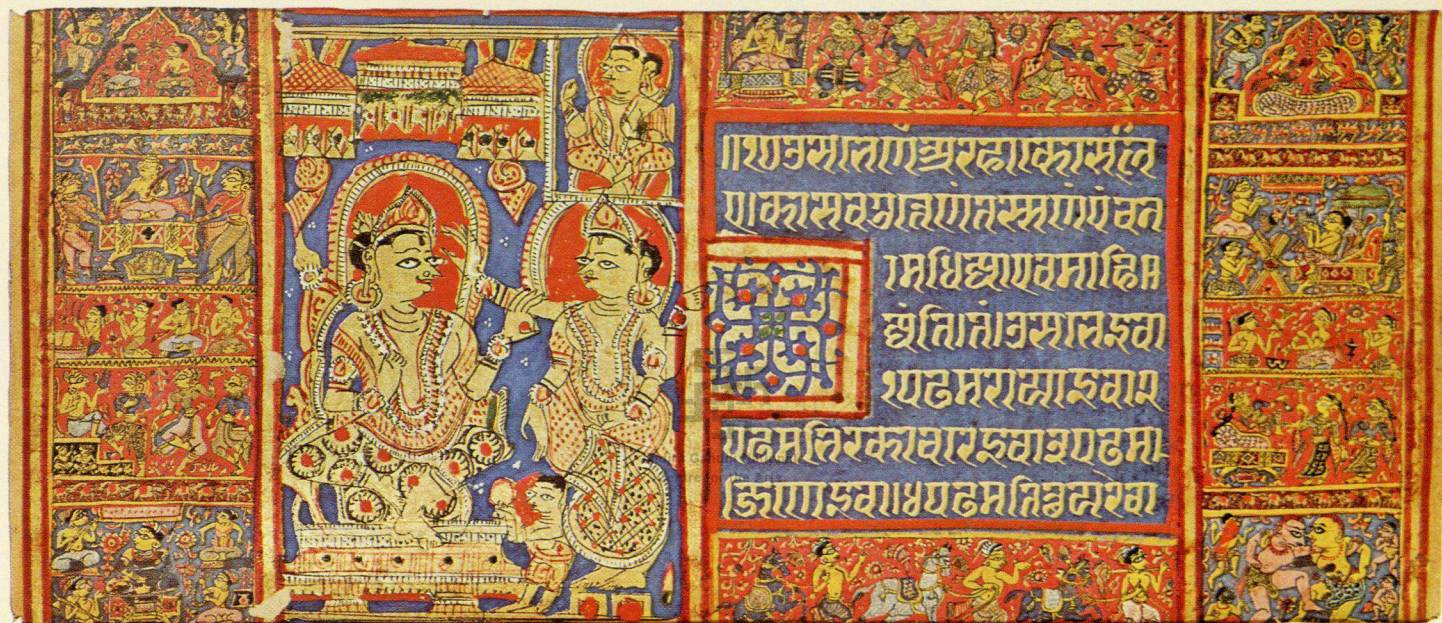 ॥२०उसभेणं अरहा कोसलि
ए।कासवगुत्तेणं तस्सणं पंचना
मधिज्जा एवमाहिज्ज
ंति। तं। उसभेइवा
१पढमरायाइवा२
पढमभिरकायरेइवा३पढम
जिणेइवा॥४पढमतित्थयरेवा